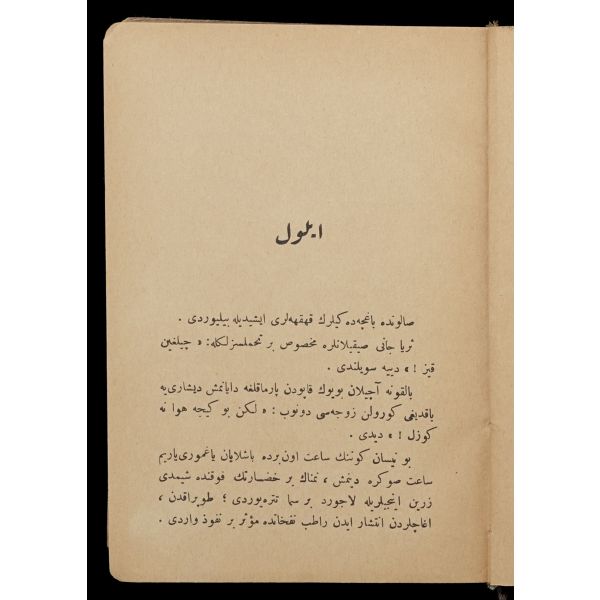 ايلول
صالونده باغچه‌ده كيلرك قهقهه‌لرى ايشيديله بيليوردى .
ثريا جانى صيقيلانلره مخصوص بر تحملسزلكله: « چيلغين
قيز ! » دييه سويلندى .
بالقونه آچيلان بويوك قاپودن پارماقلغه دايانمش ديشارى‌يه
باقديغى كورولن زوجه‌سى دونوب : « لكن بو كيجه هوا نه
كوزل ! » ديدى .
بو نيسان كوننك ساعت اون‌برده باشلايان ياغمورى ياريم
ساعت صوكره دينمش ، نمناك بر خضارتك فوقنده شيمدى
زرين اينجيلريله لاجورد بر سما تتره‌يوردى ؛ طوپراقدن ،
اغاچلردن انتشار ايدن راطب نفخاتده مؤثر بر نفوذ واردى .